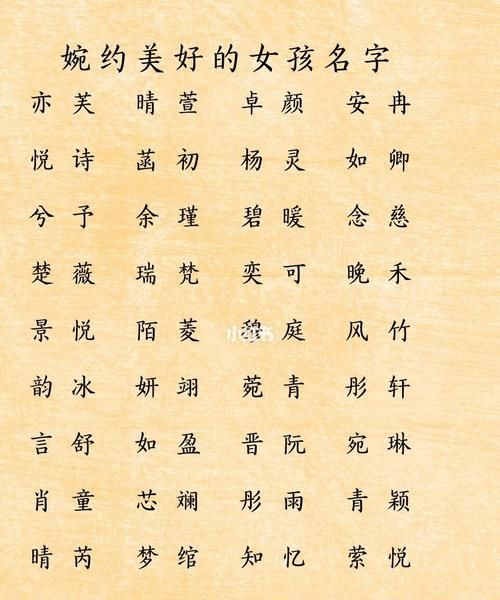 婉约美好的女孩名字
亦芙 晴萱 卓颜 安冉
悦诗 菡初 杨灵 如卿
兮予 余瑾 碧暖 念慈
楚薇 瑞梵 奕可 晚禾
景悦 陌菱 穆庭 风竹
韵冰 妍翊 菀青 彤轩
言舒 如盈 晋阮 宛琳
肖童 芯斓 彤雨 青颖
晴芮 梦绾 知忆 萦悦